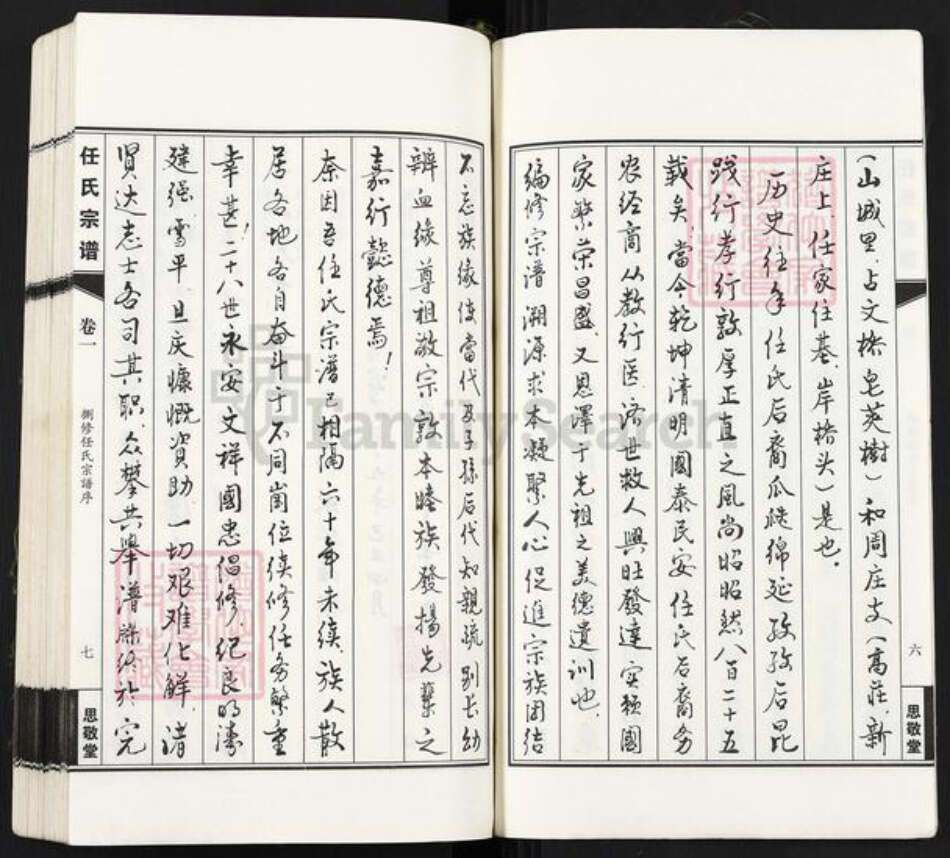 (山城里、占文桥、皂荚樹)和周庄支(高莊、新
庄上、任家住基、岸桥头)是也.
历史往年任氏后裔瓜瓞绵延孜孜后昆
践行孝行敦厚正直之風尚昭昭然八百二十五
载矣.當今乾坤清明國泰民安任氏后裔务
农经商从教行医济世救人興旺發達实赖國
家繁荣昌盛.又恩澤于先祖之美德遺訓也.
编修宗譜溯源求本凝聚人心促進宗族团结
六
思敬堂
不忘族缘使當代及子孫后代知親疏别长幼
辨血缘尊祖敬宗敦本睦族發揚先輩之
嘉行懿德焉!
奈因吾任氏宗譜已相隔六十年未续.族人散
居各地各自奋斗于不同崗位续修任务繁重
幸甚!二十八世永安文祥國忠倡修.纪良明濤
建强雪平.旦庆慷慨资助一切艰难化解.诸
贤达志士各司其职.众擎共举譜牒终於完
任氏宗谱
卷一
捌修任氏宗譜序
七
思敬堂
FamilySearch